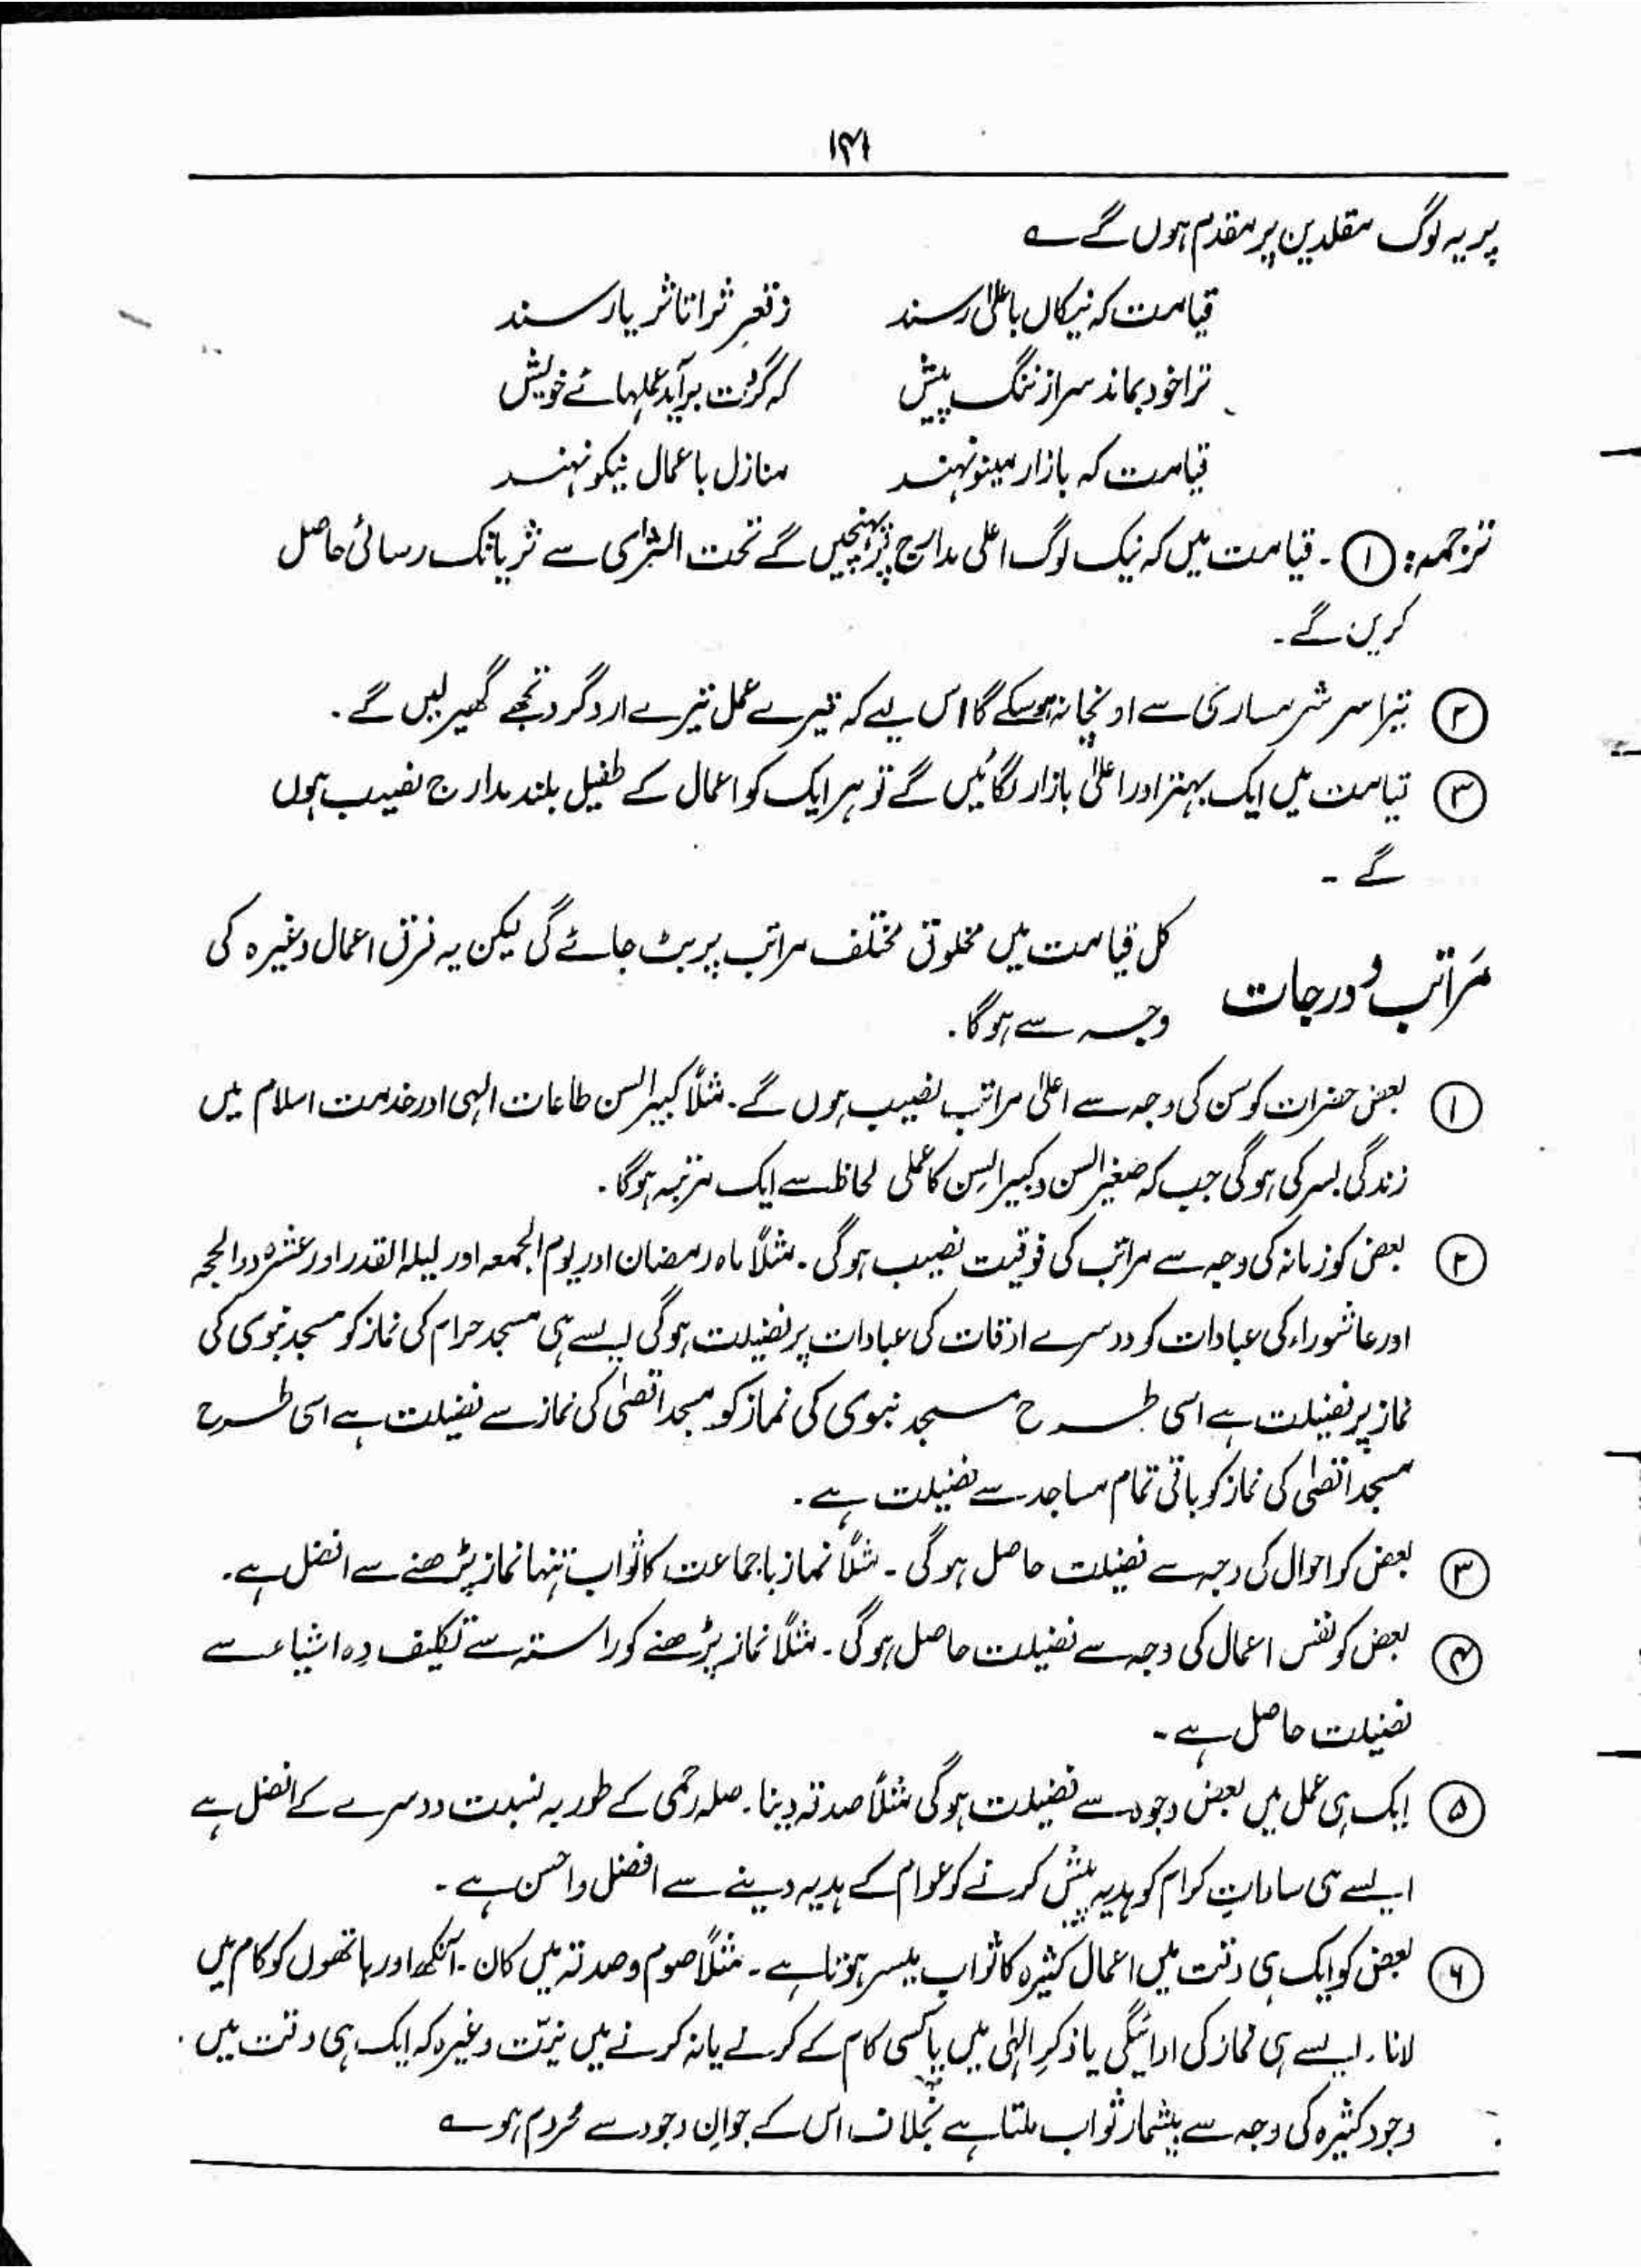 ۱۴۱
پر یہ لوگ مقلدین پر مقدم ہوں گے ؎
قیامت کہ نیکاں باعلیٰ رسند    ز قعرِ ثرا تا ثریا رسند
ترا خود بماند سر از ننگ پیش    کہ گردت برآید عملہائے خویش
قیامت کہ بازار مینو نہند    منازل باعمال نیکو نہند
ترجمہ: ۱۔ قیامت میں کہ نیک لوگ اعلی مدارج پر پہنچیں گے تحت الثریٰ سے ثریا تک رسائی حاصل
کریں گے۔
۲ تیرا سر شرمساری سے اونچا نہ ہو سکے گا اس لیے کہ تیرے عمل تیرے ارد گرد تجھے گھیر لیں گے۔
۳ قیامت میں ایک بہتر اور اعلیٰ بازار لگائیں گے تو ہر ایک کو اعمال کے طفیل بلند مدارج نصیب ہوں
گے ۔
مَراتب و درجات
کل قیامت میں مخلوق مختلف مراتب پر بٹ جائے گی لیکن یہ فرق اعمال وغیرہ کی
وجہ سے ہو گا۔
۱ بعض حضرات کو سن کی وجہ سے اعلیٰ مراتب نصیب ہوں گے۔ مثلاً کبیر السن طاعات الہی اور خدمت اسلام میں
زندگی بسر کی ہوگی جب کہ صغیر السن و کبیر السن کا عملی لحاظ سے ایک مرتبہ ہو گا۔
۲ بعض کو زمانہ کی وجہ سے مراتب کی فوقیت نصیب ہوگی۔ مثلاً ماہ رمضان اور یوم الجمعہ اور لیلۃ القدر اور عشرہ ذوالحجہ
اور عاشوراء کی عبادات کو دوسرے اوقات کی عبادات پر فضیلت ہوگی ایسے ہی مسجد حرام کی نماز کو مسجد نبوی کی
نماز پر فضیلت ہے اسی طرح مسجد نبوی کی نماز کو مسجد اقصٰی کی نماز سے فضیلت ہے اسی طرح
مسجد اقصٰی کی نماز کو باقی تمام مساجد سے فضیلت ہے۔
۳ بعض کو احوال کی وجہ سے فضیلت حاصل ہوگی ۔ مثلاً نماز باجماعت کا ثواب تنہا نماز پڑھنے سے افضل ہے۔
۴ بعض کو نفس اعمال کی وجہ سے فضیلت حاصل ہوگی۔ مثلاً نماز پڑھنے کو راستہ سے تکلیف دہ اشیاء سے
فضیلت حاصل ہے۔
۵ ایک ہی عمل میں بعض وجوہ سے فضیلت ہوگی مثلاً صدقہ دینا۔ صلہ رحمی کے طور بہ نسبت دوسرے کے افضل ہے
ایسے ہی ساداتِ کرام کو ہدیہ پیش کرنے کو عوام کے ہدیہ دینے سے افضل و احسن ہے ۔
۶ بعض کو ایک ہی وقت میں اعمال کثیرہ کا ثواب میسر ہوتا ہے ۔ مثلاً صوم و صدقہ میں کان ۔ آنکھ اور ہاتھوں کو کام میں
لانا ۔ ایسے ہی نماز کی ادائیگی یا ذکرِ الہٰی میں یا کسی کام کے کرنے یا نہ کرنے میں نیّت وغیرہ کہ ایک ہی وقت میں
وجود کثیرہ کی وجہ سے بیشمار ثواب ملتا ہے بخلاف اس کے جو ان وجود سے محروم ہو ؎